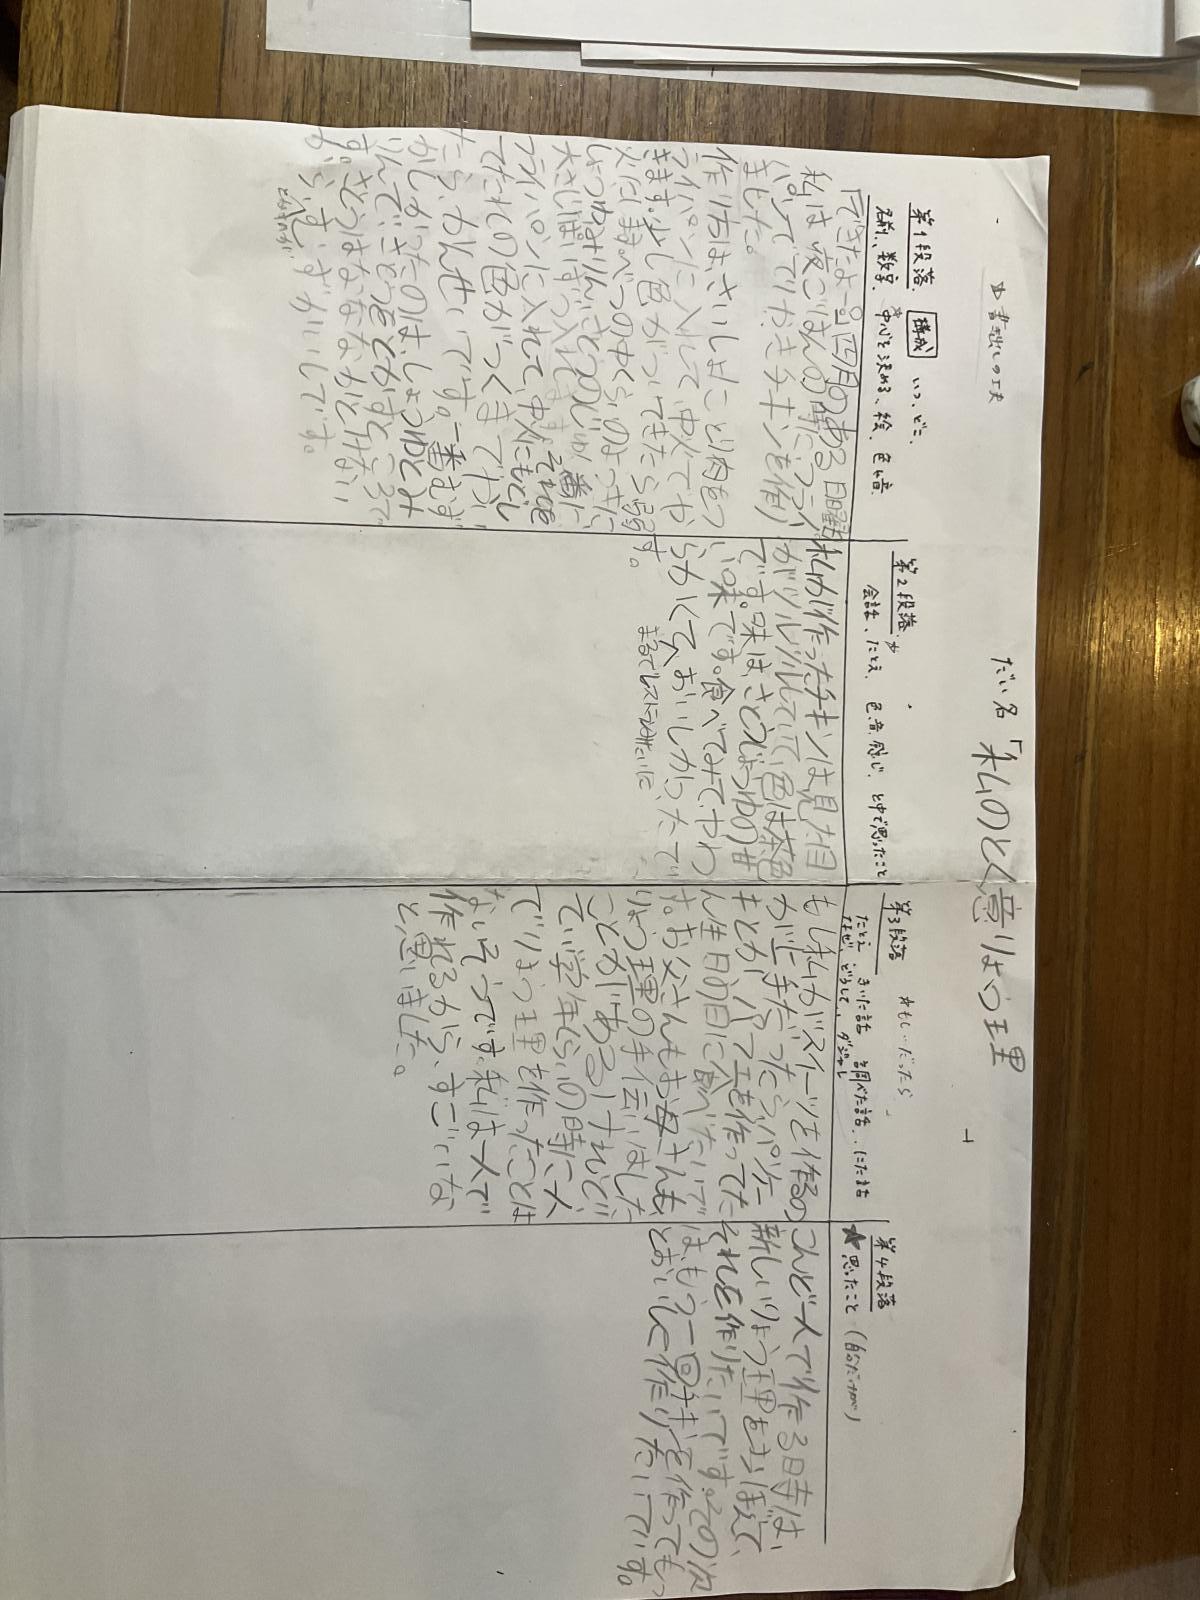 だい名「私のとくいりょう理
書き出しの工夫
第1段落 構成 いつ、どこ、
名前、数字、中心を決める、絵、色、音
「できたよー。」四月のある日曜日
私は夜ごはんの時にフライ
パンでてりやきチキンを作り
ました。
作り方は、さいしょにとり肉をフ
ライパンに入れて、中火でや
きます。少し色がついてきたら弱
火にします。
しょうゆ、みりん、さとうのじゅん番に
大さじ2はいずつ入れます。それを
フライパンに入れて、中火にもどし
てたれの色がつくまでやい
たら、かんせいです。一番むず
かしかったのは、しょうゆとみ
りんでさとうをとかすところで
す。さとうはなかなかとけない
から、むずかしいです。
第2段落
会話、たとえ、色、音、感じ、と中で思ったこと
私が作ったチキンは見た目
がツルツルしていて、色は茶色
です。味は、さとうじょうゆのせ
い味です。食べてみて、やわ
らかくて、おいしかったで
す。
まるでレストランみたいに
第3段落 もし〜だったら
たとえ きいた話 調べた話、にた話
なぜ、どうして、ダジャレ
もし私がスイーツを作るの
が上手だったら、パンケー
キとか、パフェを作ってた
ん生日の日に食べたいで
す。お父さんもお母さんも
りょう理の手伝いはした
ことがあるけれど、
て、学年くらいの時に一人
でりょう理を作ったことは
ないそうです。私は一人で
作れるから、すごいな
と思いました。
第4段落
★思ったこと(自分だけが)
こんど一人で作る時は、
新しいりょう理をおぼえて、
それを作りたいです。その次
は、もう一回チキンを作っても
っとおいしく作りたいです。